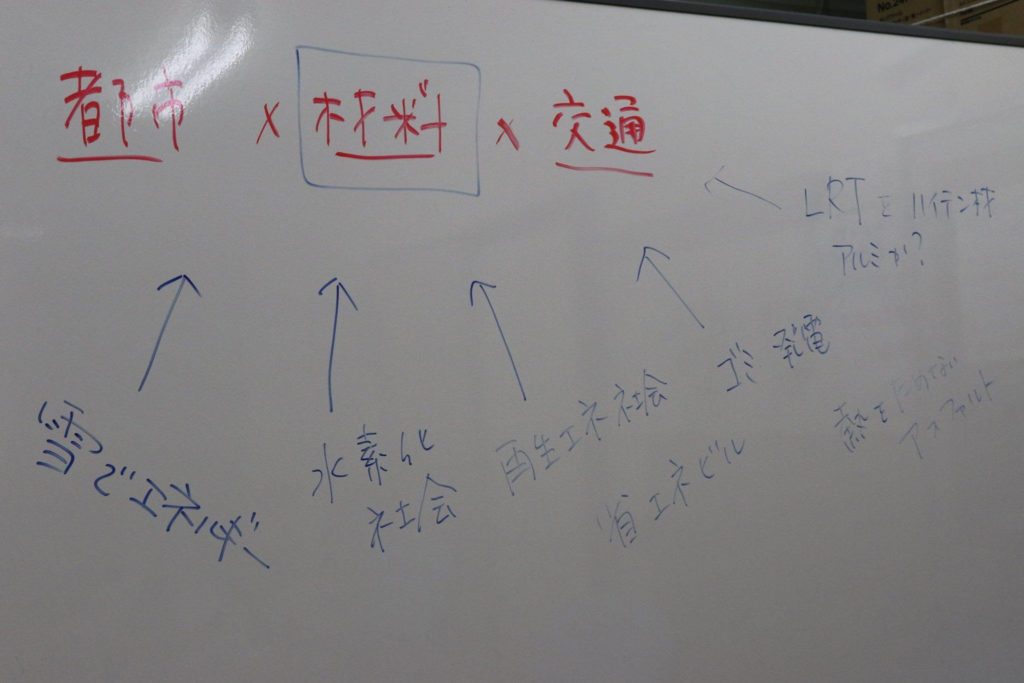 都市 × 材料 × 交通
LRTをハイテン材
アルミか?
雪でエネルギー
水素化
社会
再生エネ社会
省エネビル
ゴミ発電
熱をためない
アスファルト
No.24